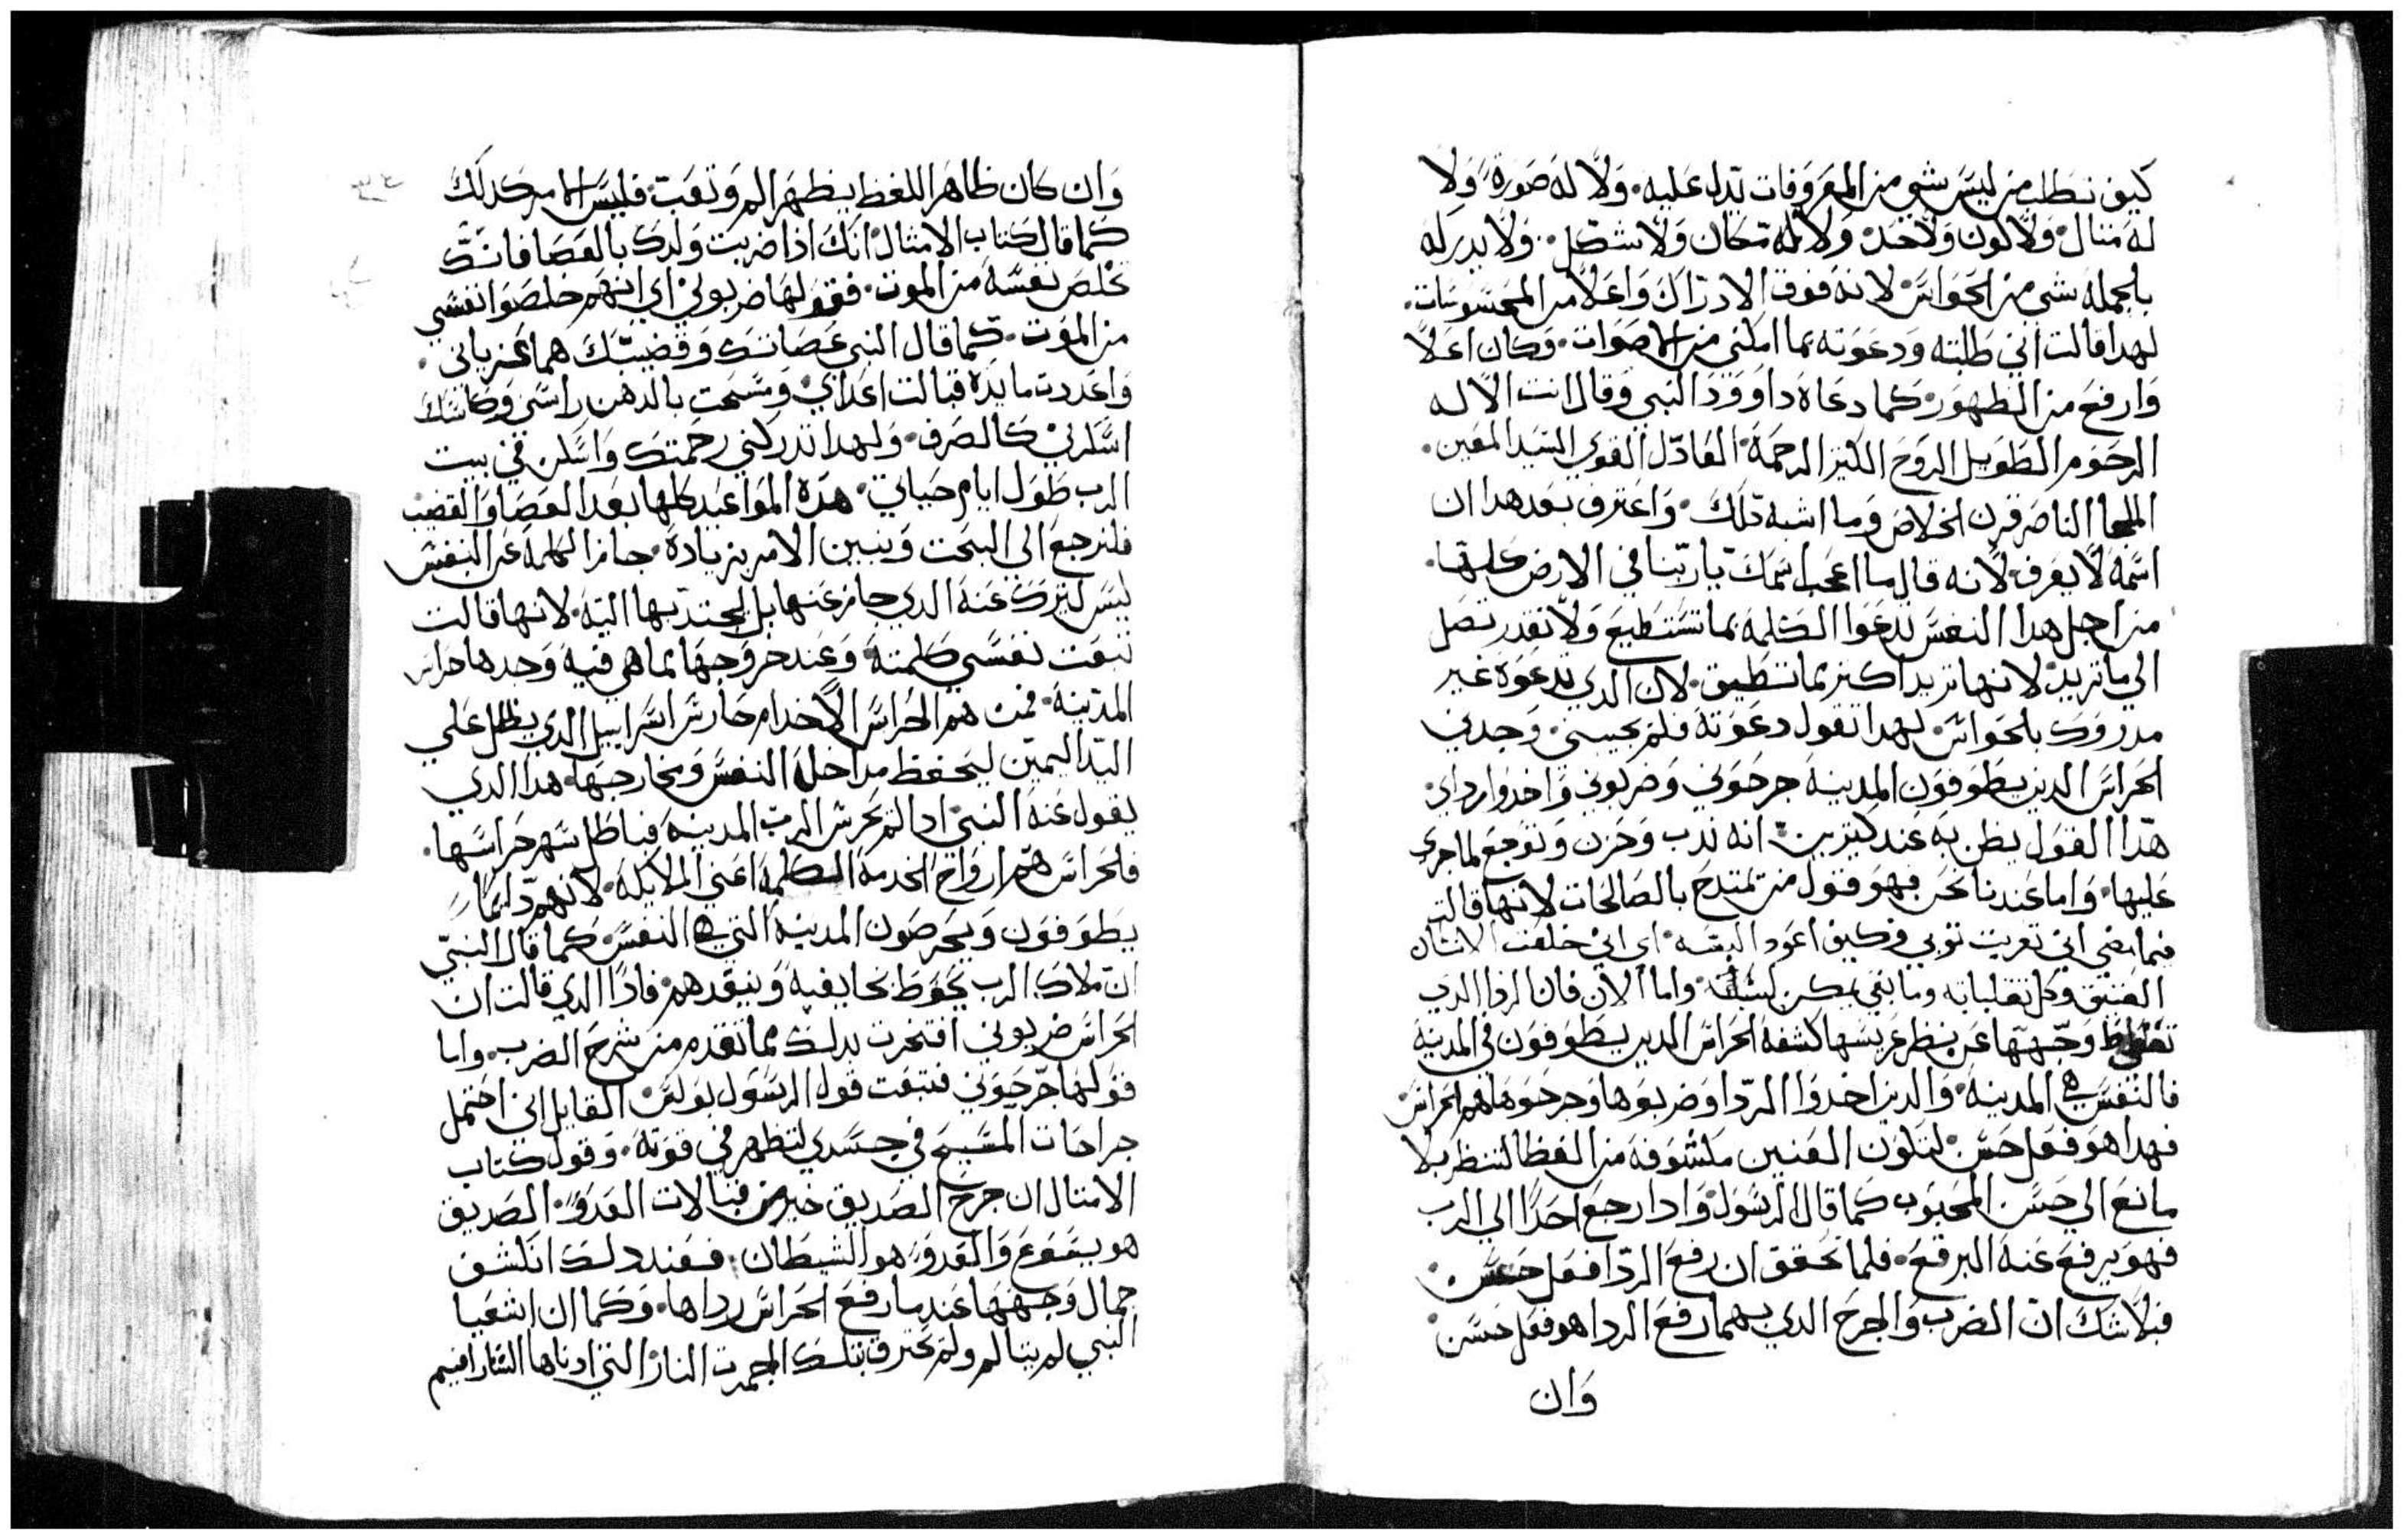 كيف نطلب من ليس شي من المعروفات تدل عليه. ولا له صورة ولا
له مثال ولا كون ولا حد ولا له مكان ولا شكل. ولا يدركه
بالجملة شي من الحواس لانه فوق الادراك واعلا من المحسوسات.
لهدا قالت اني طلبته ودعوته بما امكنني من الاصوات. وكان اعلا
وارفع من الظهور كما دعاه داوود النبي وقال انت الاله
الرحوم الطويل الروح الكثير الرحمة العادل القوي السيد المعين.
الملجا الناصر قرن الخلاص وما اشبه تلك. واعترف بعد هدا ان
اسمه لا يعرف لانه قال ما اعجب اسمك يا ربنا في الارض كلها.
من اجل هدا النفس تدعوا الكلمة بما تستطيع ولا تقدر تصل
الي ما تريد لانها تريد اكتر مما تطيق. لان الدي تدعوه غير
مدروك بالحواس لهدا تقول دعوته فلم يجيبني. وجدني
الحراس الدين يطوفون المدينة جرحوني وضربوني واخدوا رداي.
هدا القول يظن به عند كتيرين انه ندب وحزن وتوجع لما جري
عليها. واما عندنا نحن فهو قول من تمتدح بالصالحات لانها قالت
فيما مضي اني تعريت توبي وكيف اعود البسه. اي اني خلعت الانسان
العتيق وكل تقلباته وما بقي يمكن لبسه. واما الان فان الردا الدي
تغطي وجهها عن نظر عريسها كشفه الحراس الدين يطوفون في المدينة
فالنفس هي المدينة. والدين اخدوا الردا وضربوها وجرحوها هم الحراس
فهدا هو فعل حسن لتكون العينين مكشوفة من الغطا لتنظر بلا
مانع الي حسن المحبوب كما قال الرسول وادا رجع احدا الي الرب
فهو يرفع عنه البرقع. فلما تحقق ان رفع الردا فعل حسن.
فبلا شك ان الضرب والجرح الدي بهما رفع الردا هو فعل حسن.
وان
وان كان ظاهر اللفظ يظهر الم وتعب. فليس الامر كدلك
كما قال كتاب الامثال انك ادا ضربت ولدك بالعصا فانك
تخلص نفسه من الموت. فقولها ضربوني اي انهم خلصوا نفسي
من الموت. كما قال النبي عصاتك وقضيبك هما عزياني.
واعددت مايدة قبالت اعداي ومسحت بالدهن راسي وكاسك
اسكرني كالصرف. ولهدا تدركني رحمتك واسكن في بيت
الرب طول ايام حياتي. هده المواعيد كلها بعد العصا والقضيب
فلنرجع الى البحت ونبين الامر بزيادة. جاز الكلمة عن النفس
ليس ليترك عنه الدي جاز عنها بل ليجتدبها اليه. لانها قالت
تبعت نفسي كلمته وعند خروجها مما هي فيه وجدها حراس
المدينة. فمن هم الحراس الا خدام حارس اسراييل الدي يظلل علي
اليد اليمين ليحفظ مداخل النفس ومخارجها. هدا الدي
يقول عنه النبي ادا لم يحرس الرب المدينة فباطل سهر حراسها.
فالحراس هم ارواح الخدمة الكلمة اعني الملايكة. لانهم دايما
يطوفون ويحرصون المدينة التي هي النفس كما قال النبي
ان ملاك الرب يحوط بخايفيه وينقدهم. فادا الدي قالت ان
الحراس ضربوني افتخرت بدلك بما تقدم من شرح الضرب. واما
قولها جرحوني فتبعت قول الرسول بولس القايل اني احتمل
جراحات المسيح في جسدي لتظهر في قوته. وقول كتاب
الامتال ان جرح الصديق خير من قبالات العدو. الصديق
هو يسوع والعدو هو الشيطان. فعند دلك انكشف
جمال وجهها عند ما رفع الحراس رداها. وكما ان اشعيا
النبي لم يتالم ولم يحترق بتلك الجمرت النار التي ادناها السارافيم